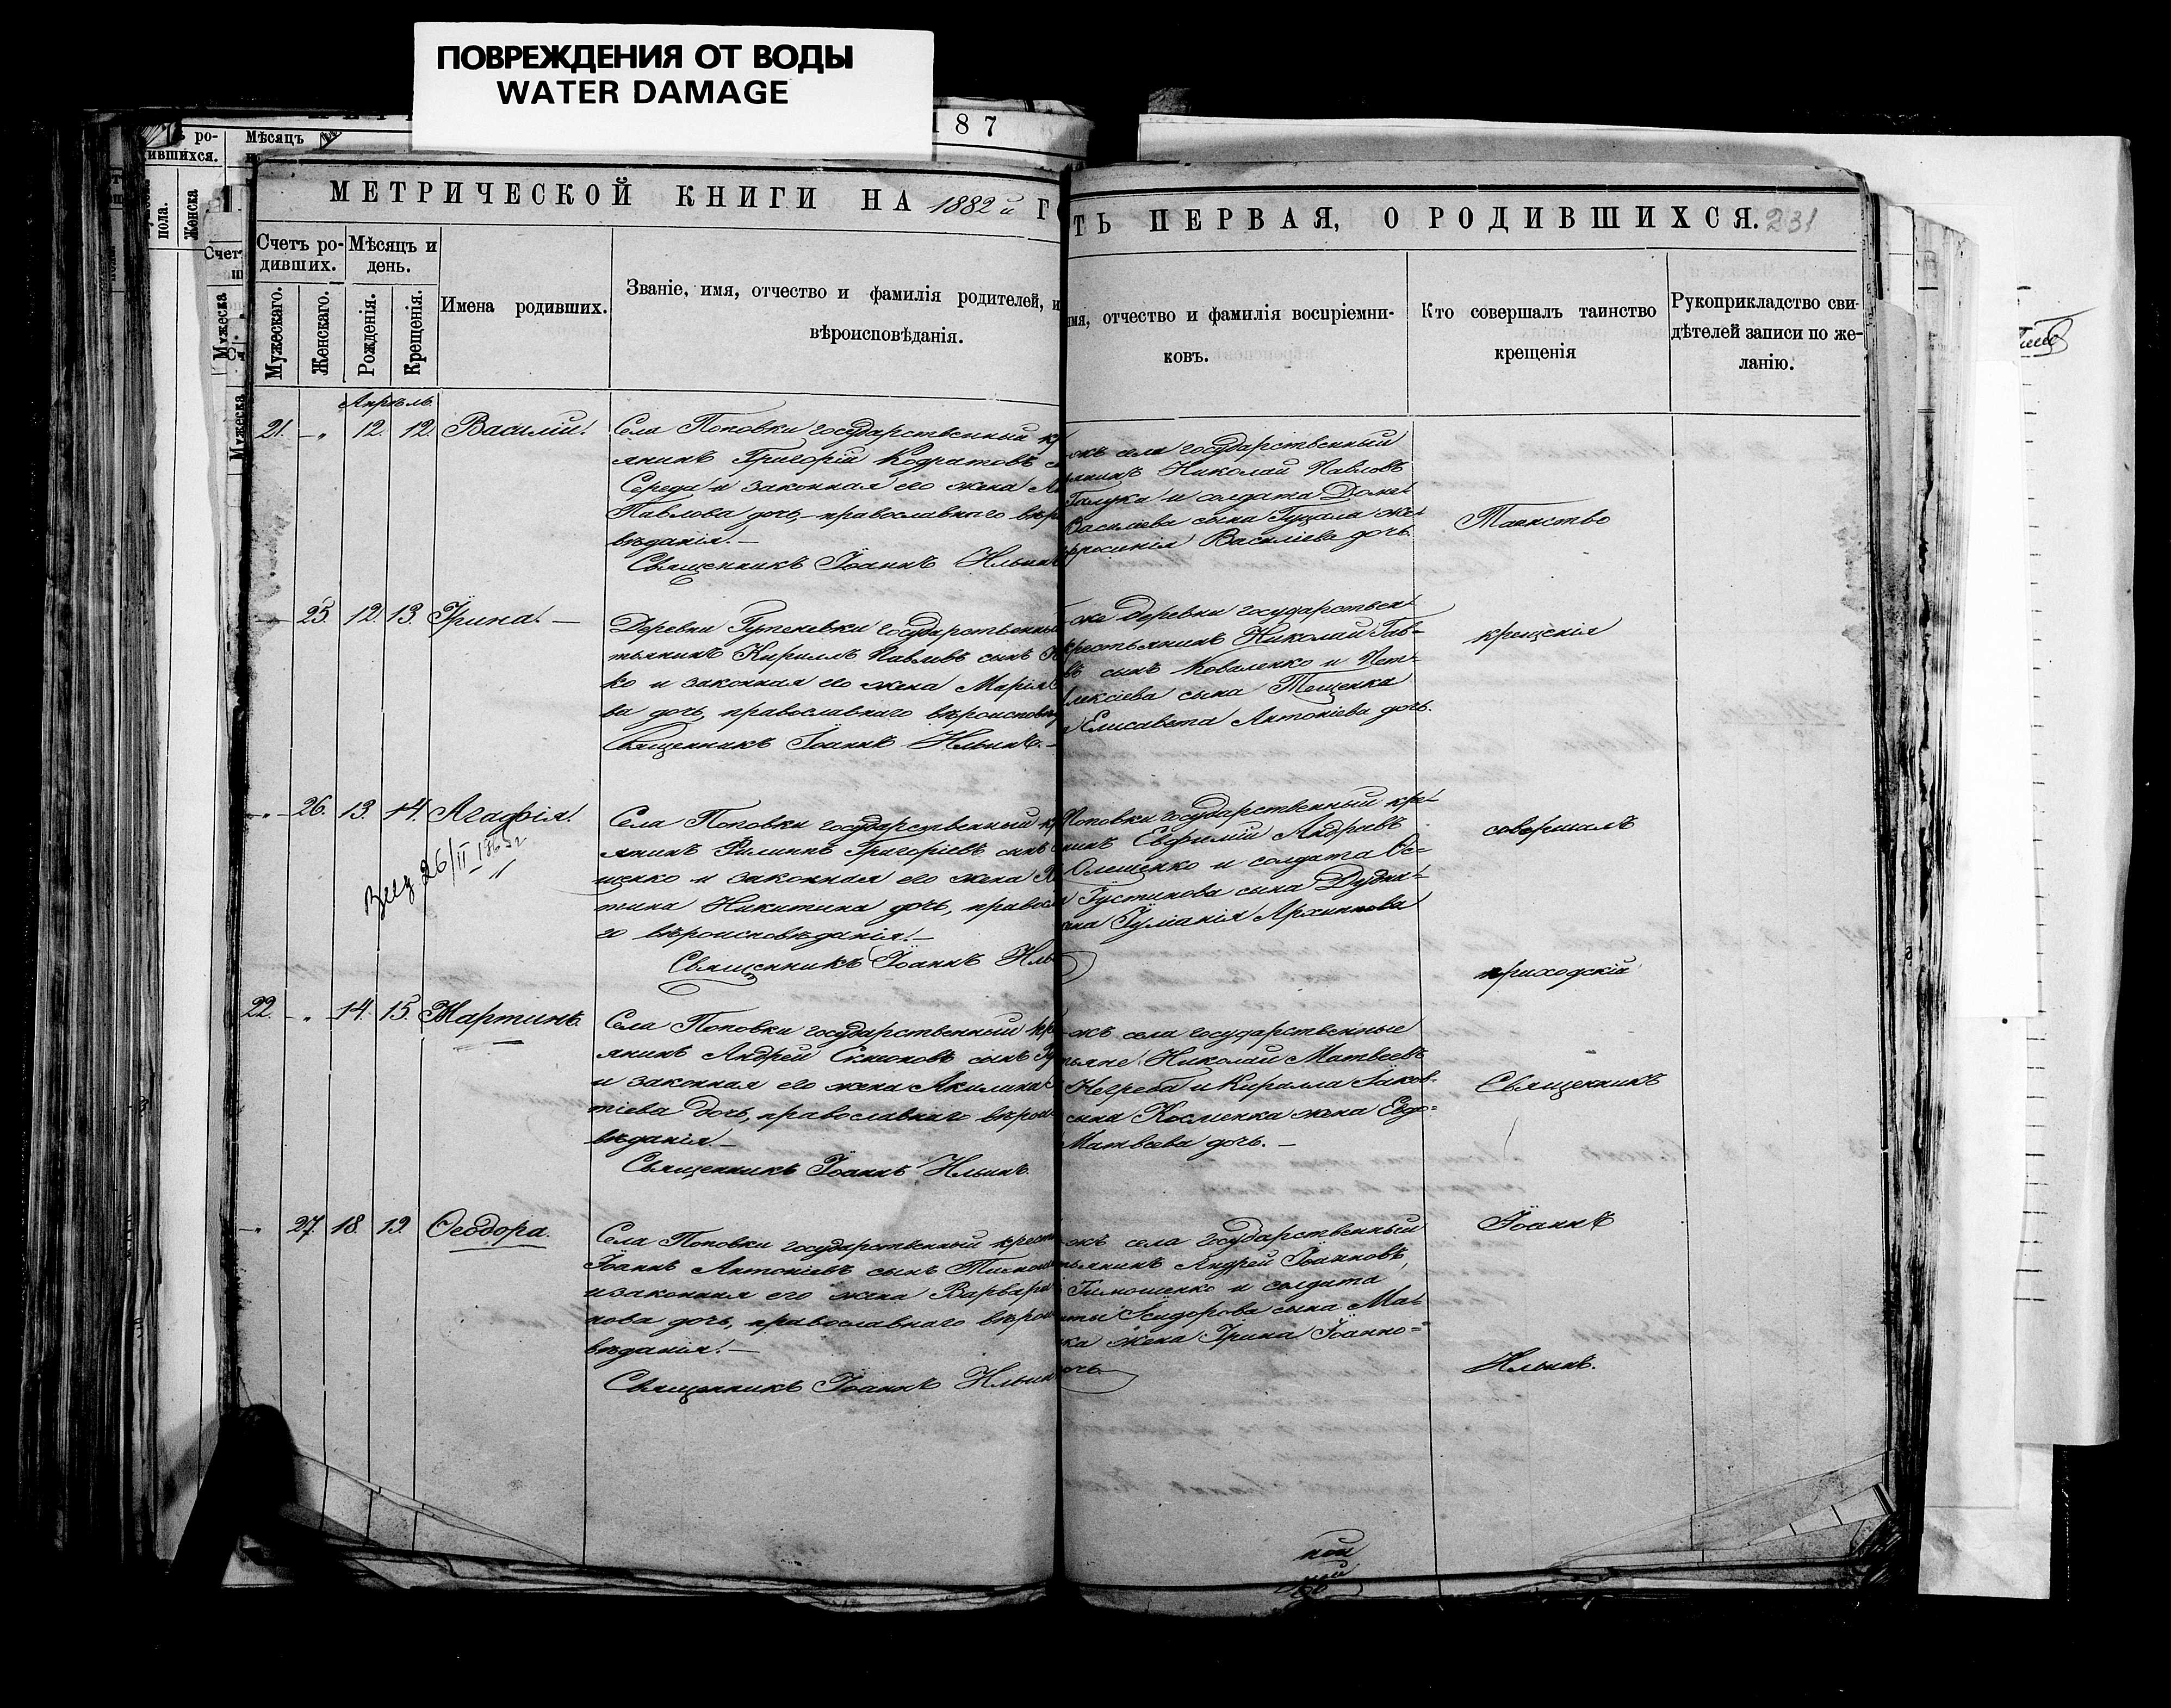 ПОВРЕЖДЕНИЯ ОТ ВОДЫ
WATER DAMAGE
187
МЕТРИЧЕСКОЙ КНИГИ НА 1882 й Г
ТЬ ПЕРВАЯ, О РОДИВШИХСЯ. 231
Счетъ ро-
дивших.
Мѣсяцъ и
день.
Мужескаго.
Женскаго.
Рожденія.
Крещенія.
Имена родивших.
Званіе, имя, отчество и фамилія родителей, и
вѣроисповѣданія.
имя, отчество и фамилія воспріемни-
ковъ.
Кто совершалъ таинство
крещенія
Рукоприкладство сви-
дѣтелей записи по же-
ланію.
Апрѣль
21. 12. 12. Василій.
Села Поповки государственный кр
янинъ Григорій Кодратовъ с
Середа и законная его жена
Павлова дочь, православнаго вѣр
вѣданія.
Священникъ Іоаннъ Ильин
ожъ села государственный
янинъ Николай Павловъ
Галука и солдата
Василіева сына Гуцала же
фросинія Василіева дочь.
Таинство
25. 12. 13. Ірина.
Деревни государственны
тьянинъ Кириллъ Павловъ сынъ
ко и законная его жена Марія
ва дочь, православнаго вѣроисповѣ
Священникъ Іоаннъ Ильинъ.
оже деревни государствен
крестьянинъ Николай Гав-
въ сынъ Коваленко и Пет-
лексіева сына Тещенка
Елисавета Антоніева дочь.
крещенія
26. 13. 14. Агафія.
26/II 1963 г
Села Поповки государственный кр
янинъ Филиппъ Григоріевъ сынъ
щенко и законная его жена
тина Никитина дочь, правосл
го вѣроисповѣданія.
Священникъ Іоаннъ Иль
Поповки государственный кре
нинъ Евфимій Андреевъ
Олещенко и солдата Ос-
Іустинова сына Дудка
на Іуліанія Архиппова
совершалъ
приходскій
22. 14. 15. Мартинъ.
Села Поповки государственный кр
янинъ Андрей Симеоновъ сынъ
и законная его жена Акилина
тіева дочь, православнаго вѣрои
вѣданія.
Священникъ Іоаннъ Ильинъ.
ожъ села государственные
тьяне: Николай Матвѣевъ
Негреба и Кирилла Іаков-
сына Косменка жена Евдо-
Матвѣева дочь.
Священникъ
27. 18. 19. Ѳеодора.
Села Поповки государственный крест
Іоаннъ Антоніевъ сынъ Тимош
и законная его жена Варвара
нова дочь, православнаго вѣрои
вѣданія.
Священникъ Іоаннъ Ильин
ожъ села государственный
тьянинъ Андрей Іоанновъ,
Тимошенко и солдата
ты Исидорова сына Ма
ка жена Ірина Іоанно-
очь
Іоаннъ
Ильинъ.